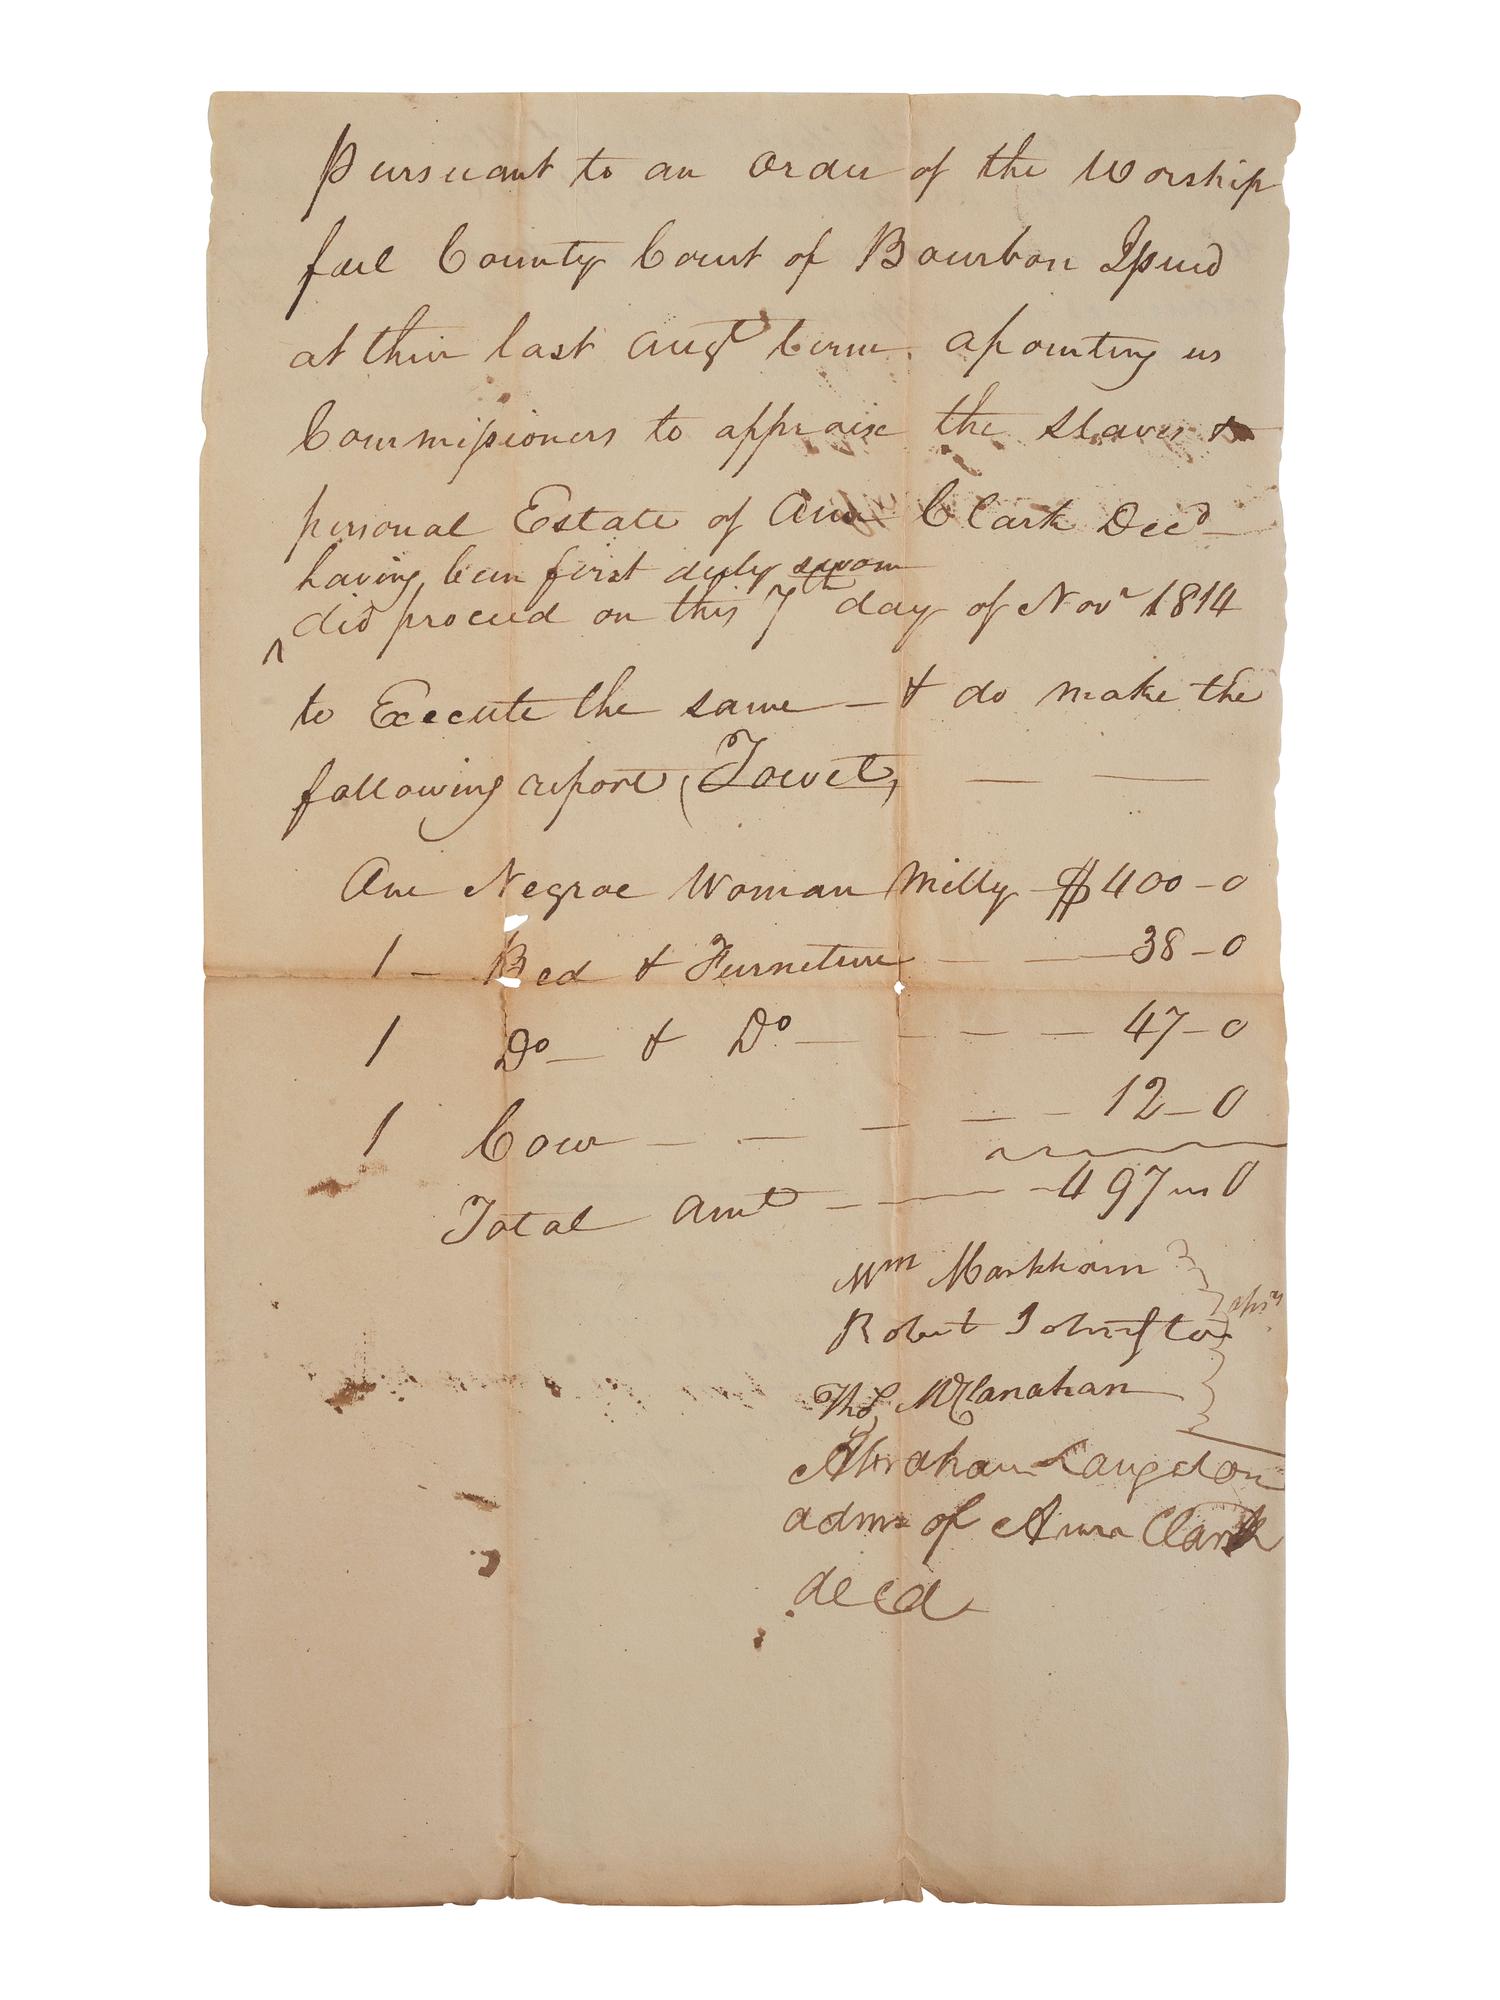 Pursuant to an order of the Worship
full County Court of Bourbon Issued
at their last Augt term. apointing us
Commissioners to appraise the slaves &
personal Estate of Ann Clark Decd
having been first duly sworn
^ did proceed on this 7th day of Novr 1814
to Execute the same — & do make the
following report (Towit) — —
One Negroe Woman Milly $400-0
1 - Bed & Furneture — — 38-0
1 Do — & Do — — — — 47-0
1 Cow — — — — — 12-0
Total Amt — — — 497 " 0
Wm Markham
Robert Johnston
Thos McClanahan
Abraham Langdon
admr of Ann Clark
decd